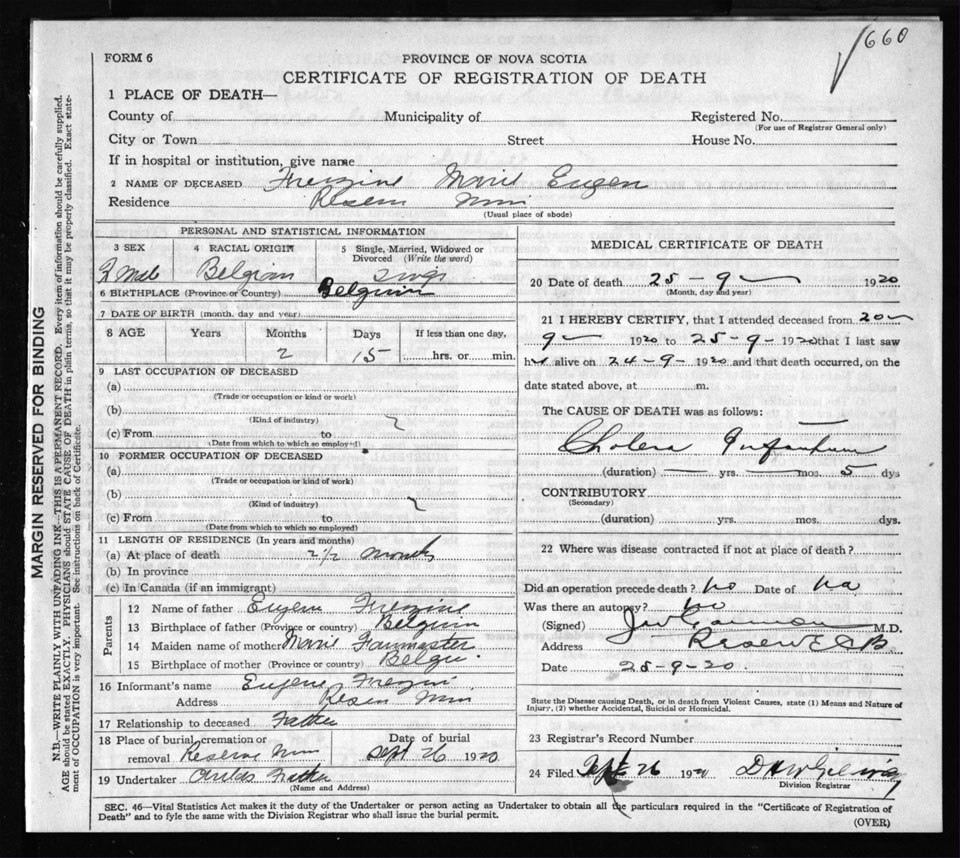 660
FORM 6
PROVINCE OF NOVA SCOTIA
CERTIFICATE OF REGISTRATION OF DEATH
1 PLACE OF DEATH—
County of Municipality of Registered No.
(For use of Registrar General only)
City or Town Street House No.
If in hospital or institution, give name
2 NAME OF DECEASED Marie Eugen
Residence
(Usual place of abode)
PERSONAL AND STATISTICAL INFORMATION
3 SEX 4 RACIAL ORIGIN 5 Single, Married, Widowed or Divorced (Write the word)
Belgian
6 BIRTHPLACE (Province or Country) Belgium
7 DATE OF BIRTH (month, day and year)
8 AGE Years Months Days If less than one day,
2 15 hrs. or min.
9 LAST OCCUPATION OF DECEASED
(a)
(Trade or occupation or kind or work)
(b)
(Kind of industry)
(c) From to
(Date from which to which so employed)
10 FORMER OCCUPATION OF DECEASED
(a)
(Trade or occupation or kind of work)
(b)
(Kind of industry)
(c) From to
(Date from which to which so employed)
11 LENGTH OF RESIDENCE (In years and months)
(a) At place of death 2 1/2 months
(b) In province
(c) In Canada (if an immigrant)
Parents
12 Name of father Eugene
13 Birthplace of father (Province or country) Belgium
14 Maiden name of mother
15 Birthplace of mother (Province or country)
16 Informant's name Eugene
Address
17 Relationship to deceased Father
18 Place of burial, cremation or removal Reserve Date of burial Sept 26 1920
19 Undertaker Childs Father
(Name and Address)
MEDICAL CERTIFICATE OF DEATH
20 Date of death 25 - 9 - 1920
(Month, day and year)
21 I HEREBY CERTIFY, that I attended deceased from 20 -
9 - 1920 to 25 - 9 - 1920 that I last saw
h alive on 24 - 9 - 1920 and that death occurred, on the
date stated above, at m.
The CAUSE OF DEATH was as follows:
Cholera Infantum
(duration) yrs. mos. 5 dys
CONTRIBUTORY
(Secondary)
(duration) yrs. mos. dys.
22 Where was disease contracted if not at place of death?
Did an operation precede death? no Date of na
Was there an autopsy? no
(Signed) M.D.
Address Reserve C B
Date 25-9-20.
State the Disease causing Death, or in death from Violent Causes, state (1) Means and Nature of
Injury, (2) whether Accidental, Suicidal or Homicidal.
23 Registrar's Record Number
24 Filed Sept 26 1920
Division Registrar
SEC. 46—Vital Statistics Act makes it the duty of the Undertaker or person acting as Undertaker to obtain all the particulars required in the "Certificate of Registration of
Death" and to fyle the same with the Division Registrar who shall issue the burial permit.
(OVER)
MARGIN RESERVED FOR BINDING
N.B.—WRITE PLAINLY WITH UNFADING INK—THIS IS A PERMANENT RECORD. Every item of information should be carefully supplied.
AGE should be stated EXACTLY. PHYSICIANS should STATE CAUSE OF DEATH in plain terms, so that it may be properly classified. Exact state-
ment of OCCUPATION is very important. See instructions on back of Certificate.